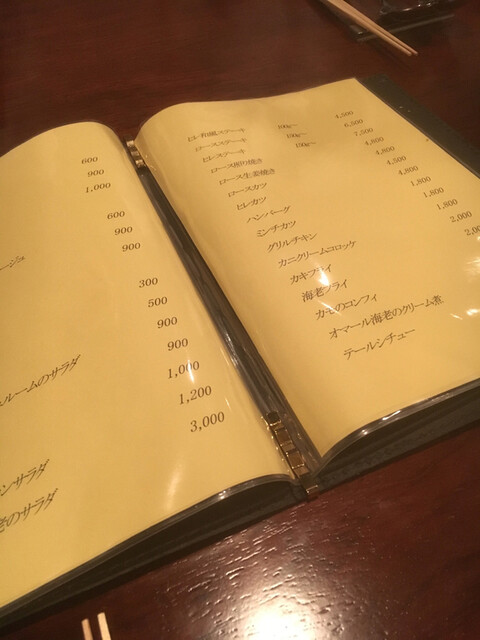 600
900
1,000
600
900
ージュ 900
300
500
900
ルームのサラダ 900
1,000
1,200
ンサラダ 3,000
老のサラダ
ヒレ和風ステーキ 4,500
ロースステーキ 200g〜 6,500
ヒレステーキ 150g〜 7,500
ロース照り焼き 150g〜 4,800
ロース生姜焼き 4,800
ロースカツ 4,500
ヒレカツ 4,800
ハンバーグ 1,800
ミンチカツ 1,800
グリルチキン 1,800
カニクリームコロッケ 2,000
カキフライ 2,0
海老フライ
カモのコンフィ
オマール海老のクリーム煮
テールシチュー